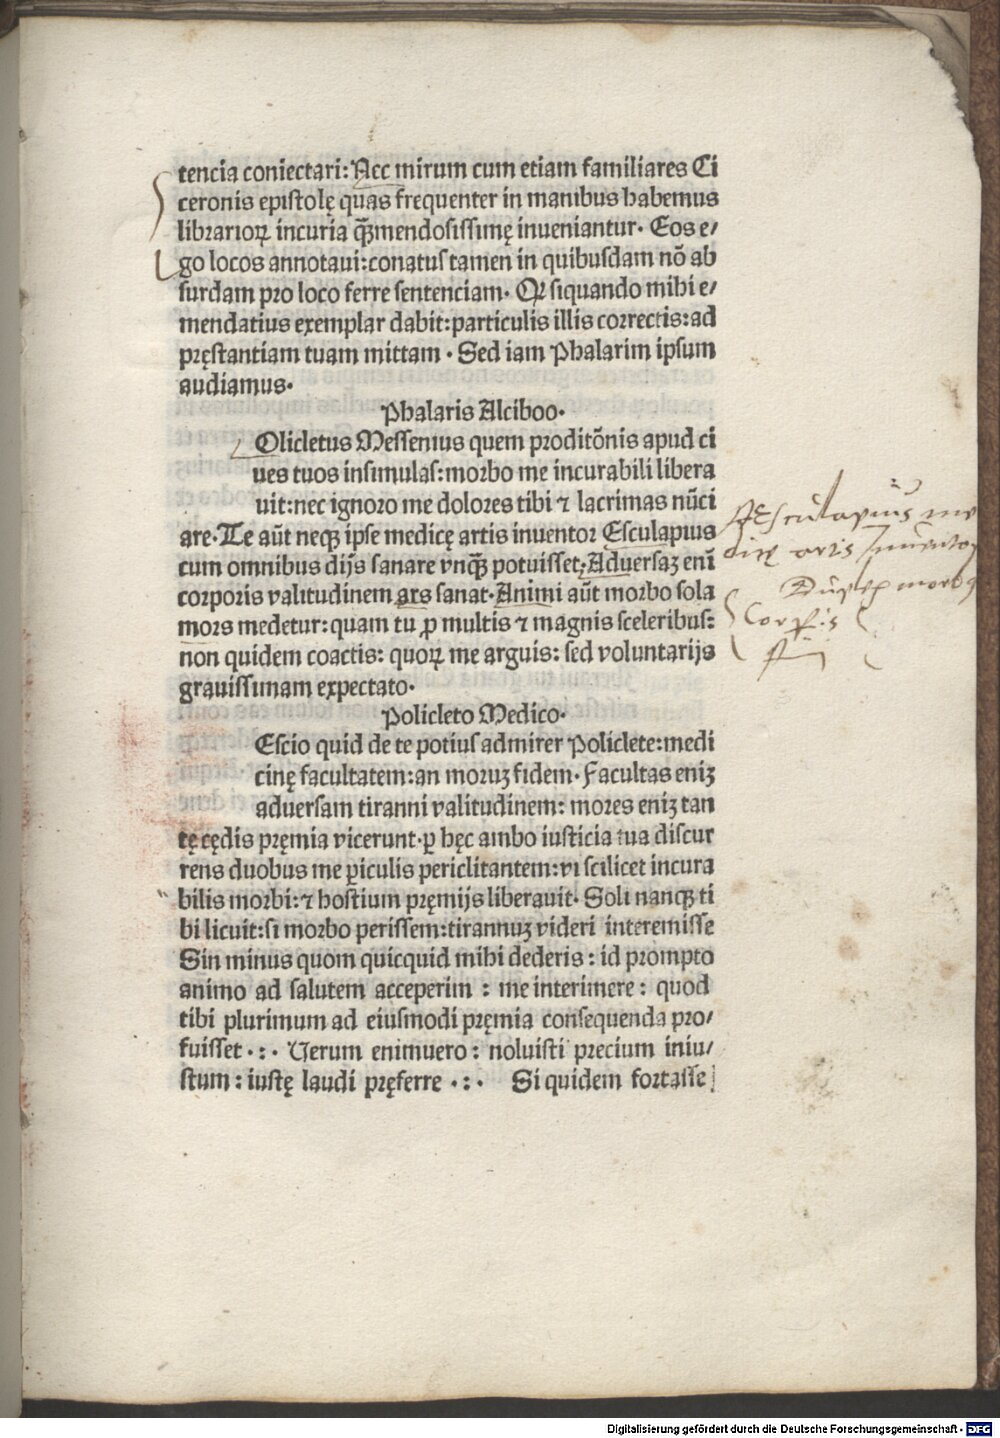 tencia coniectari: Nec mirum cum etiam familiares Ci
ceronis epistolę quas frequenter in manibus habemus
librarioꝝ incuria ꝙ̃mendosissimę inueniantur. Eos e/
go locos annotaui: conatus tamen in quibusdam nō ab
surdam pro loco ferre sentenciam. Qꝛ siquando mihi e/
mendatius exemplar dabit: particulis illis correctis: ad
pręstantiam tuam mittam. Sed iam Phalarim ipsum
audiamus.
Phalaris Alciboo.
Olicletus Messenius quem proditōnis apud ci
ues tuos insimulas: morbo me incurabili libera
uit: nec ignoro me dolores tibi ⁊ lacrimas nūci
are. Te aūt neqꝫ ipse medicę artis inuentor Esculapius
cum omnibus dijs sanare vnqꝫ̃ potuisset. Aduersaꝫ enī
corporis valitudinem ars sanat. Animi aūt morbo sola
mors medetur: quam tu ꝓ multis ⁊ magnis sceleribus:
non quidem coactis: quoꝝ me arguis: sed voluntarijs
grauissimam expectato.
Policleto Medico.
Escio quid de te potius admirer Policlete: medi
cinę facultatem: an moruꝫ fidem. Facultas eniꝫ
aduersam tiranni valitudinem: mores eniꝫ tan
tę cędis pręmia vicerunt. ꝑ hęc ambo iusticia tua discur
rens duobus me ꝑiculis periclitantem: vi scilicet incura
bilis morbi: ⁊ hostium pręmijs liberauit. Soli nanqꝫ ti
bi licuit: si morbo perissem: tirannuꝫ videri interemisse
Sin minus quom quicquid mihi dederis: id prompto
animo ad salutem acceperim: me interimere: quod
tibi plurimum ad eiusmodi pręmia consequenda pro/
fuisset .:. Verum enimuero: noluisti precium iniu/
stum: iustę laudi pręferre .:. Si quidem fortasse
Æsculapius me
dicę artis Inuentor
morbꝯ
Corꝑis
Digitalisierung gefördert durch die Deutsche Forschungsgemeinschaft - DFG